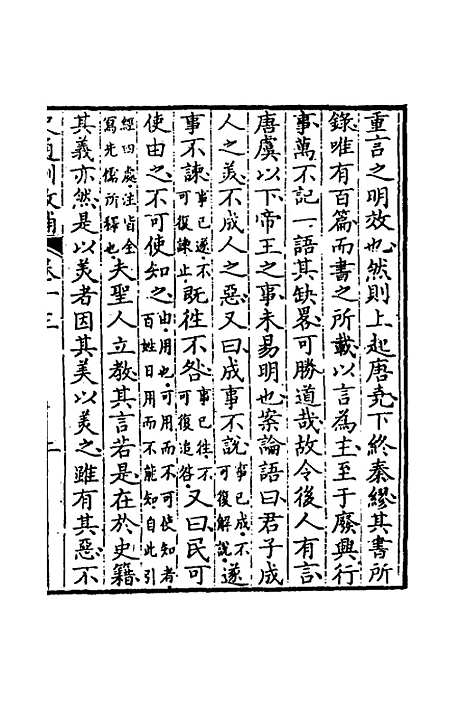 重言之明效也然則上起唐堯下終秦繆其書所
錄唯有百篇而書之所載以言為主至于廢興行
事萬不記一語其缺畧可勝道哉故令後人有言
唐虞以下帝王之事未易明也案論語曰君子成
人之美不成人之惡又曰成事不說事已成不可復解說遂
事不諫事已遂不可復諫止既徃不咎事已徃不可復追咎又曰民可
使由之不可使知之由用也可用而不可使知者百姓日用而不能知自此引
經四處注皆全寫先儒所釋也夫聖人立教其言若是在於史籍
其義亦然是以美者因其美以美之雖有其惡不
史通訓故補 卷十三